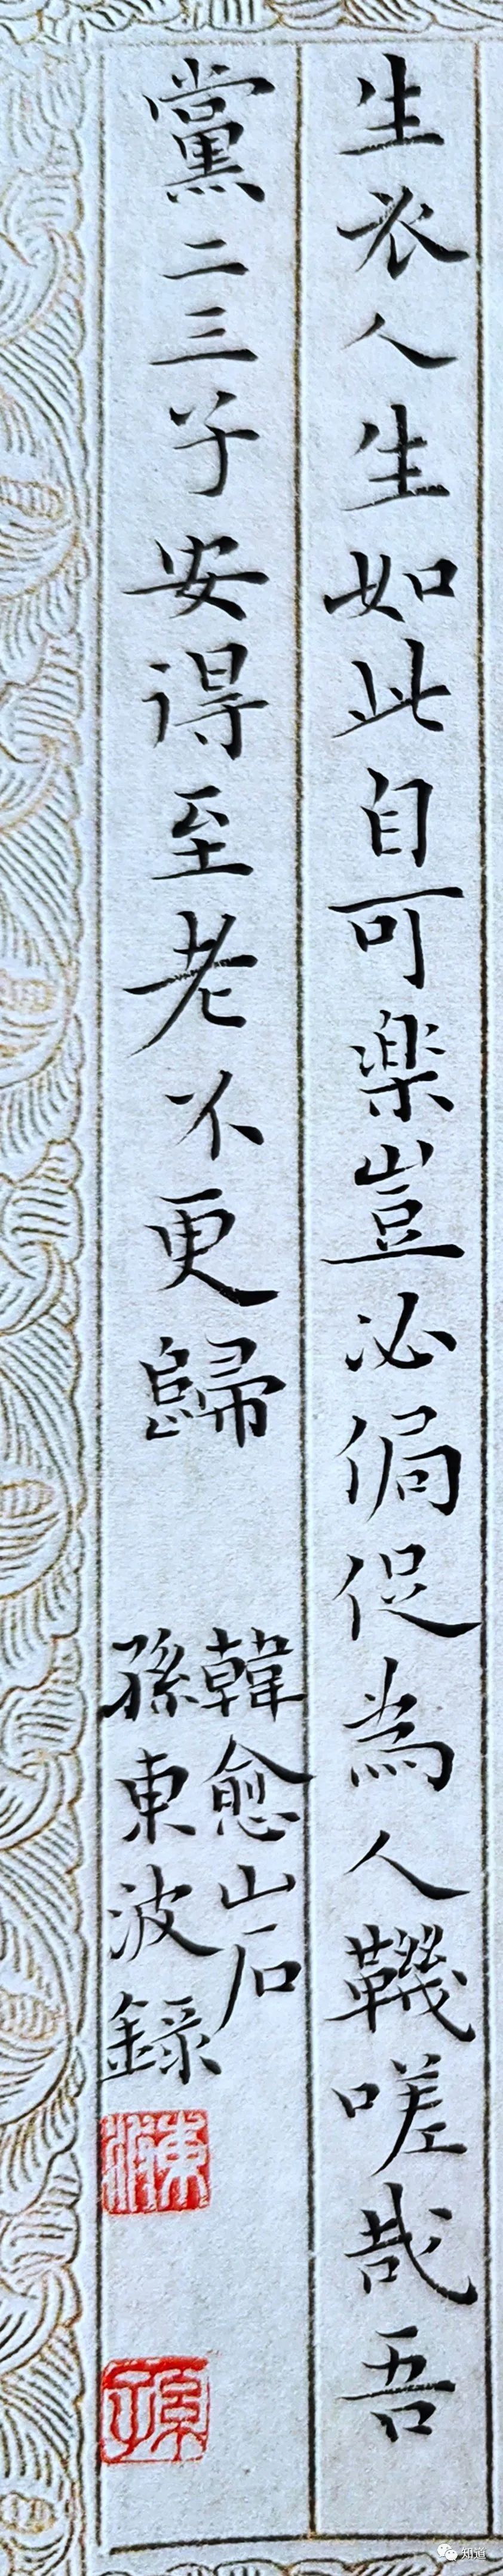 生衣人生如此自可樂豈必侷促為人鞿嗟哉吾
黨二三子安得至老不更歸
韓愈山石
孫東波錄
東波
孫
知道